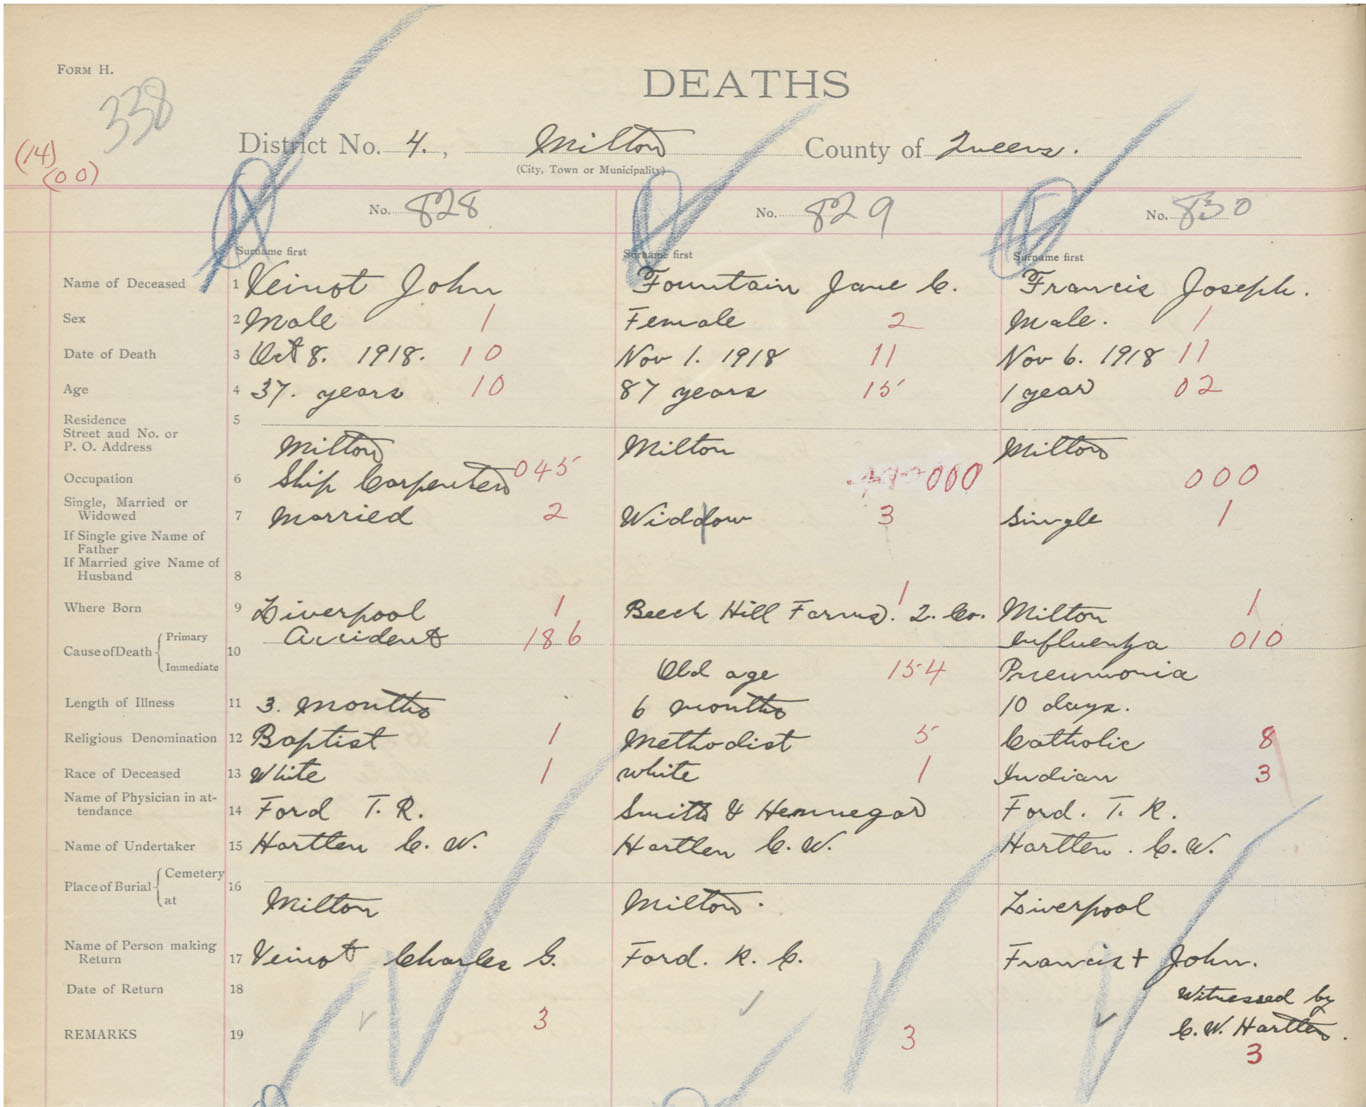 FORM H.
338
DEATHS
(14)
(00)
District No. 4. , Milton County of Queens.
(City, Town or Municipality)
No. 828 No. 829 No. 830
Surname first Surname first Surname first
Name of Deceased 1 Veinot John Fountain Jane C. Francis Joseph.
Sex 2 Male 1 Female 2 Male. 1
Date of Death 3 Oct 8. 1918. 10 Nov 1. 1918 11 Nov 6. 1918 11
Age 4 37. years 10 87 years 15 1 year 02
Residence 5
Street and No. or
P. O. Address Milton Milton Milton
Occupation 6 Ship Carpenter 045 000 000
Single, Married or
Widowed 7 Married 2 Widdow 3 Single 1
If Single give Name of
Father
If Married give Name of
Husband 8
Where Born 9 Liverpool 1 Beech Hill Farms. Q. Co. 1 Milton 1
Cause of Death Primary 10 Accident 186 Influenza 010
Immediate Old age 154 Pneumonia
Length of Illness 11 3. months 6 months 10 days.
Religious Denomination 12 Baptist 1 Methodist 5 Catholic 8
Race of Deceased 13 White 1 white 1 Indian 3
Name of Physician in at-
tendance 14 Ford T. R. Smith & Hennegar Ford. T. R.
Name of Undertaker 15 Hartlen C. W. Hartlen C. W. Hartlen. C. W.
Place of Burial Cemetery 16
at Milton Milton. Liverpool
Name of Person making
Return 17 Veinot Charles G. Ford. R. C. Francis + John.
Date of Return 18 Witnessed by
REMARKS 19 3 3 C. W. Hartlen.
3